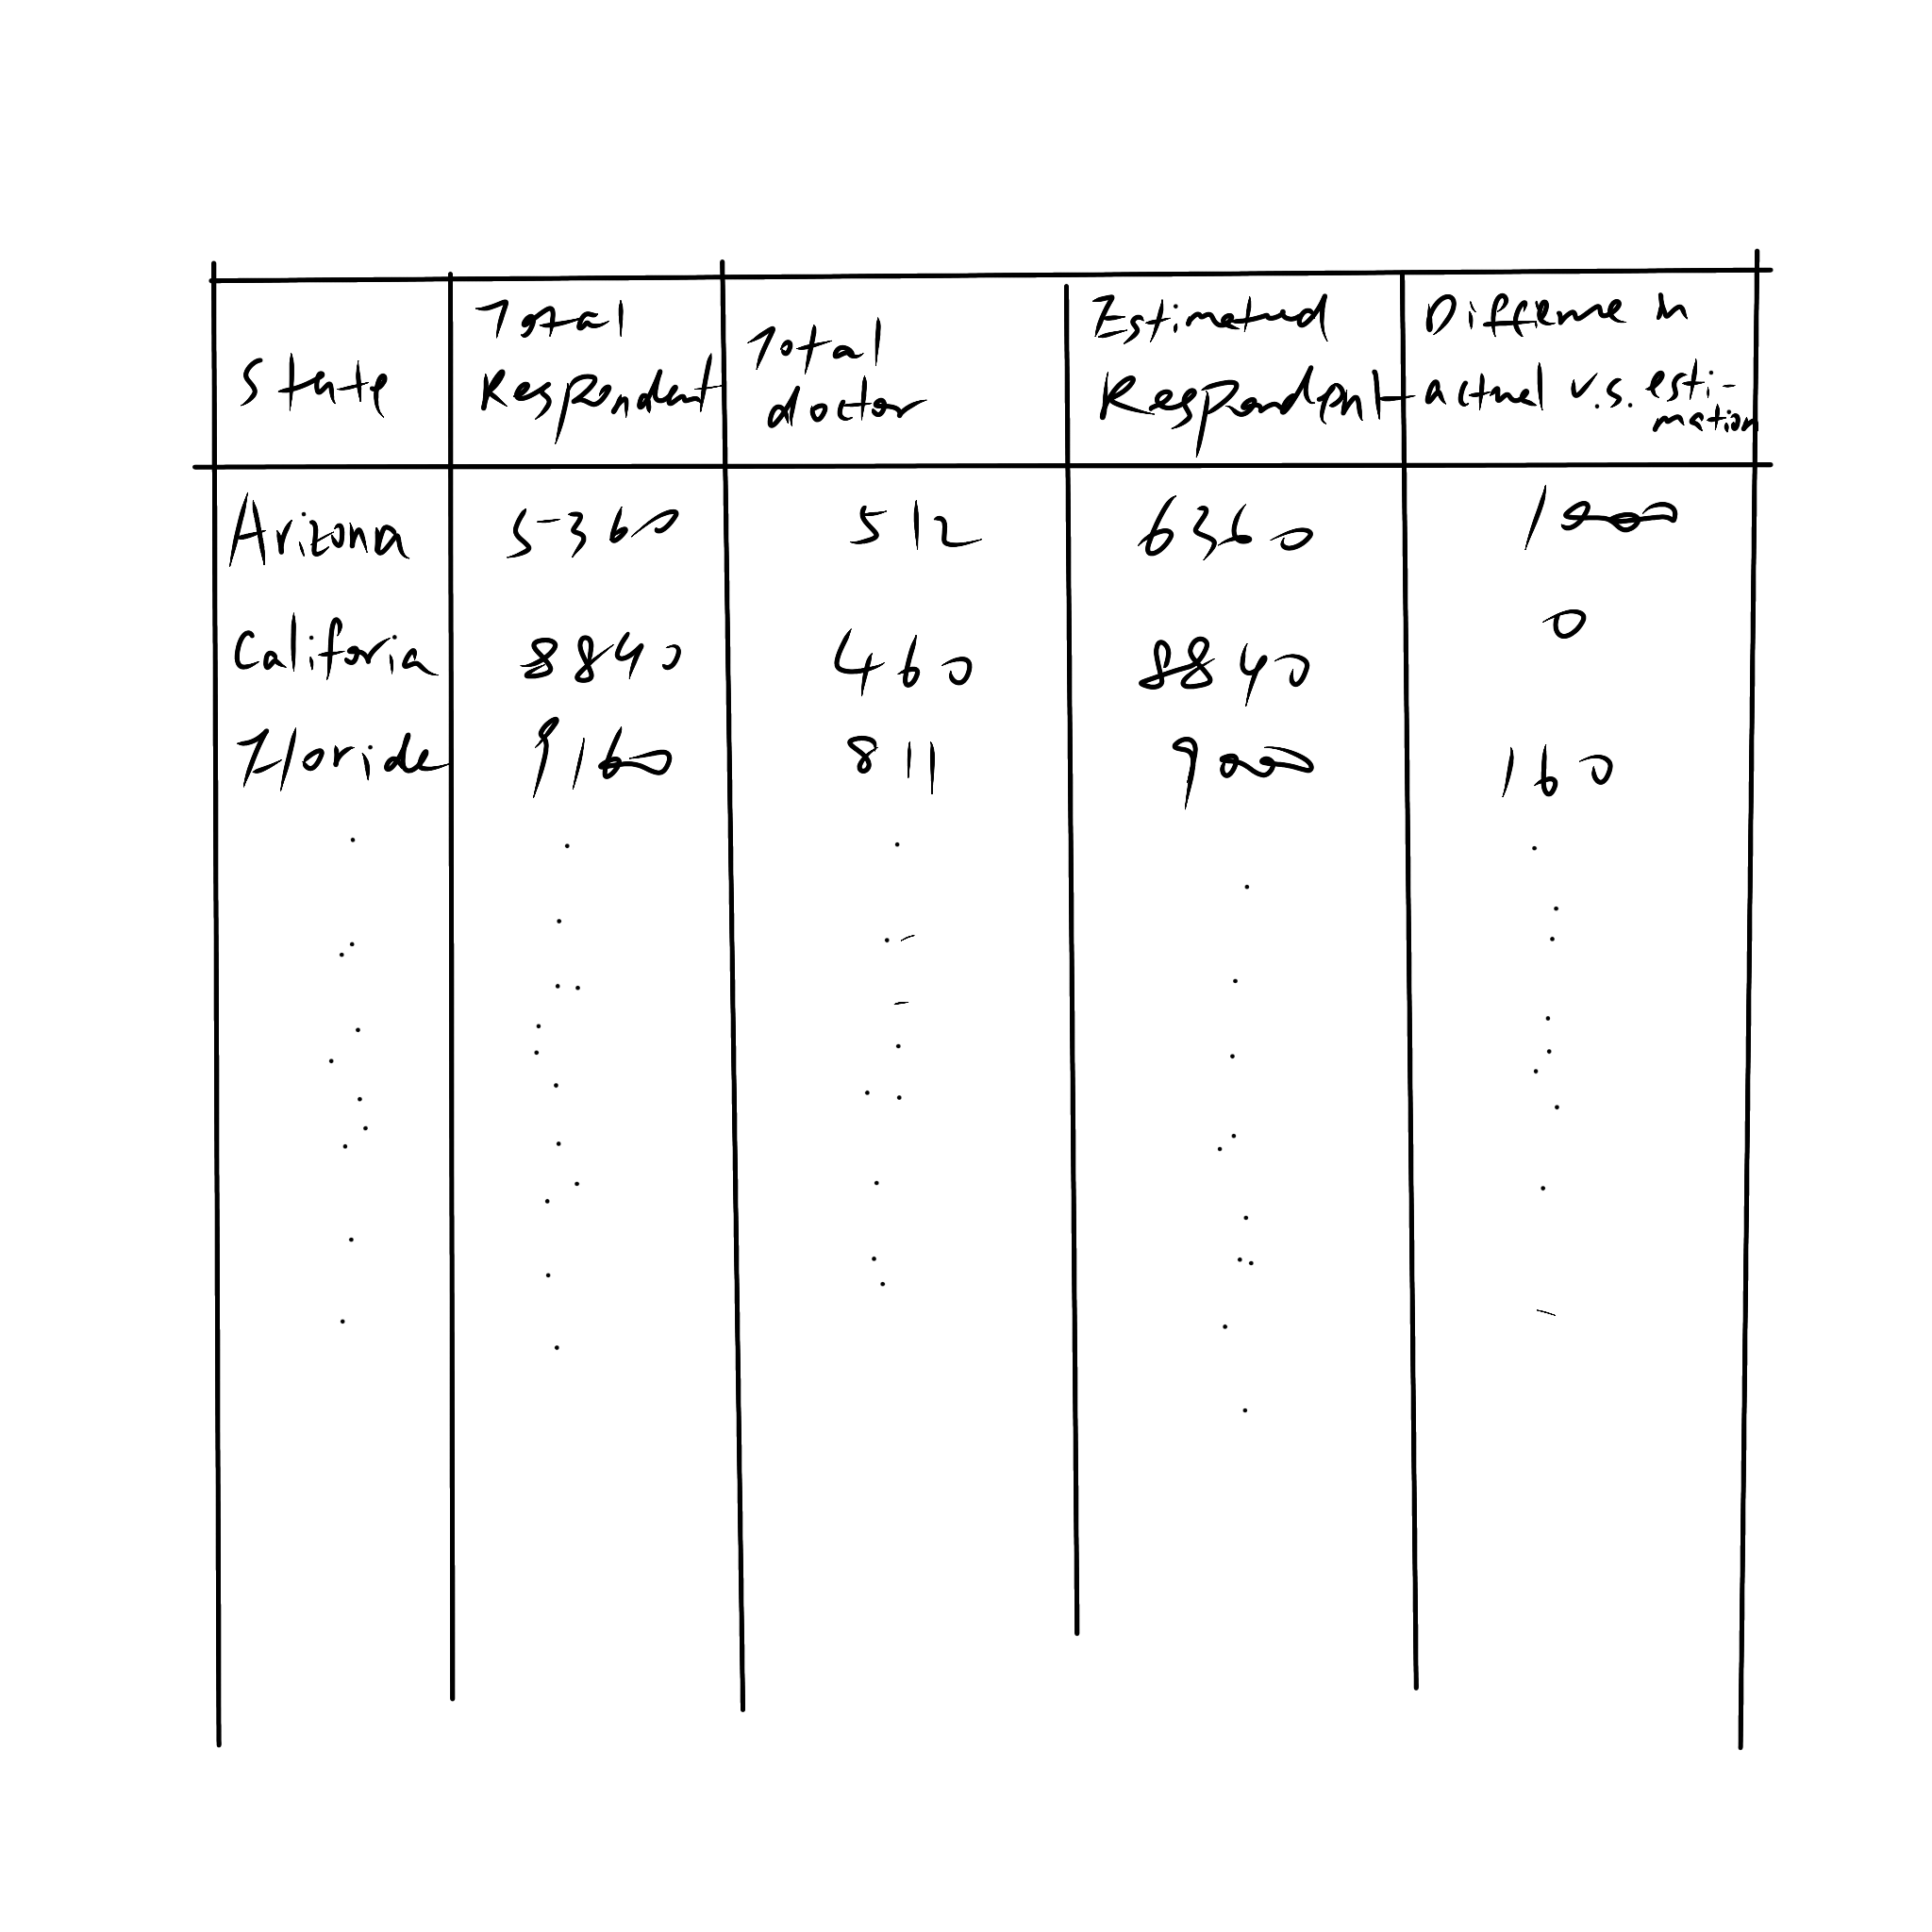 State | Total Respondent | Total doctor | Estimated Respondent | Difference in actual v.s. esti-mation
Arizona | 5360 | 512 | 6360 | 1000
Califoria | 8840 | 460 | 8840 | 0
Floride | 9160 | 811 | 9000 | 160